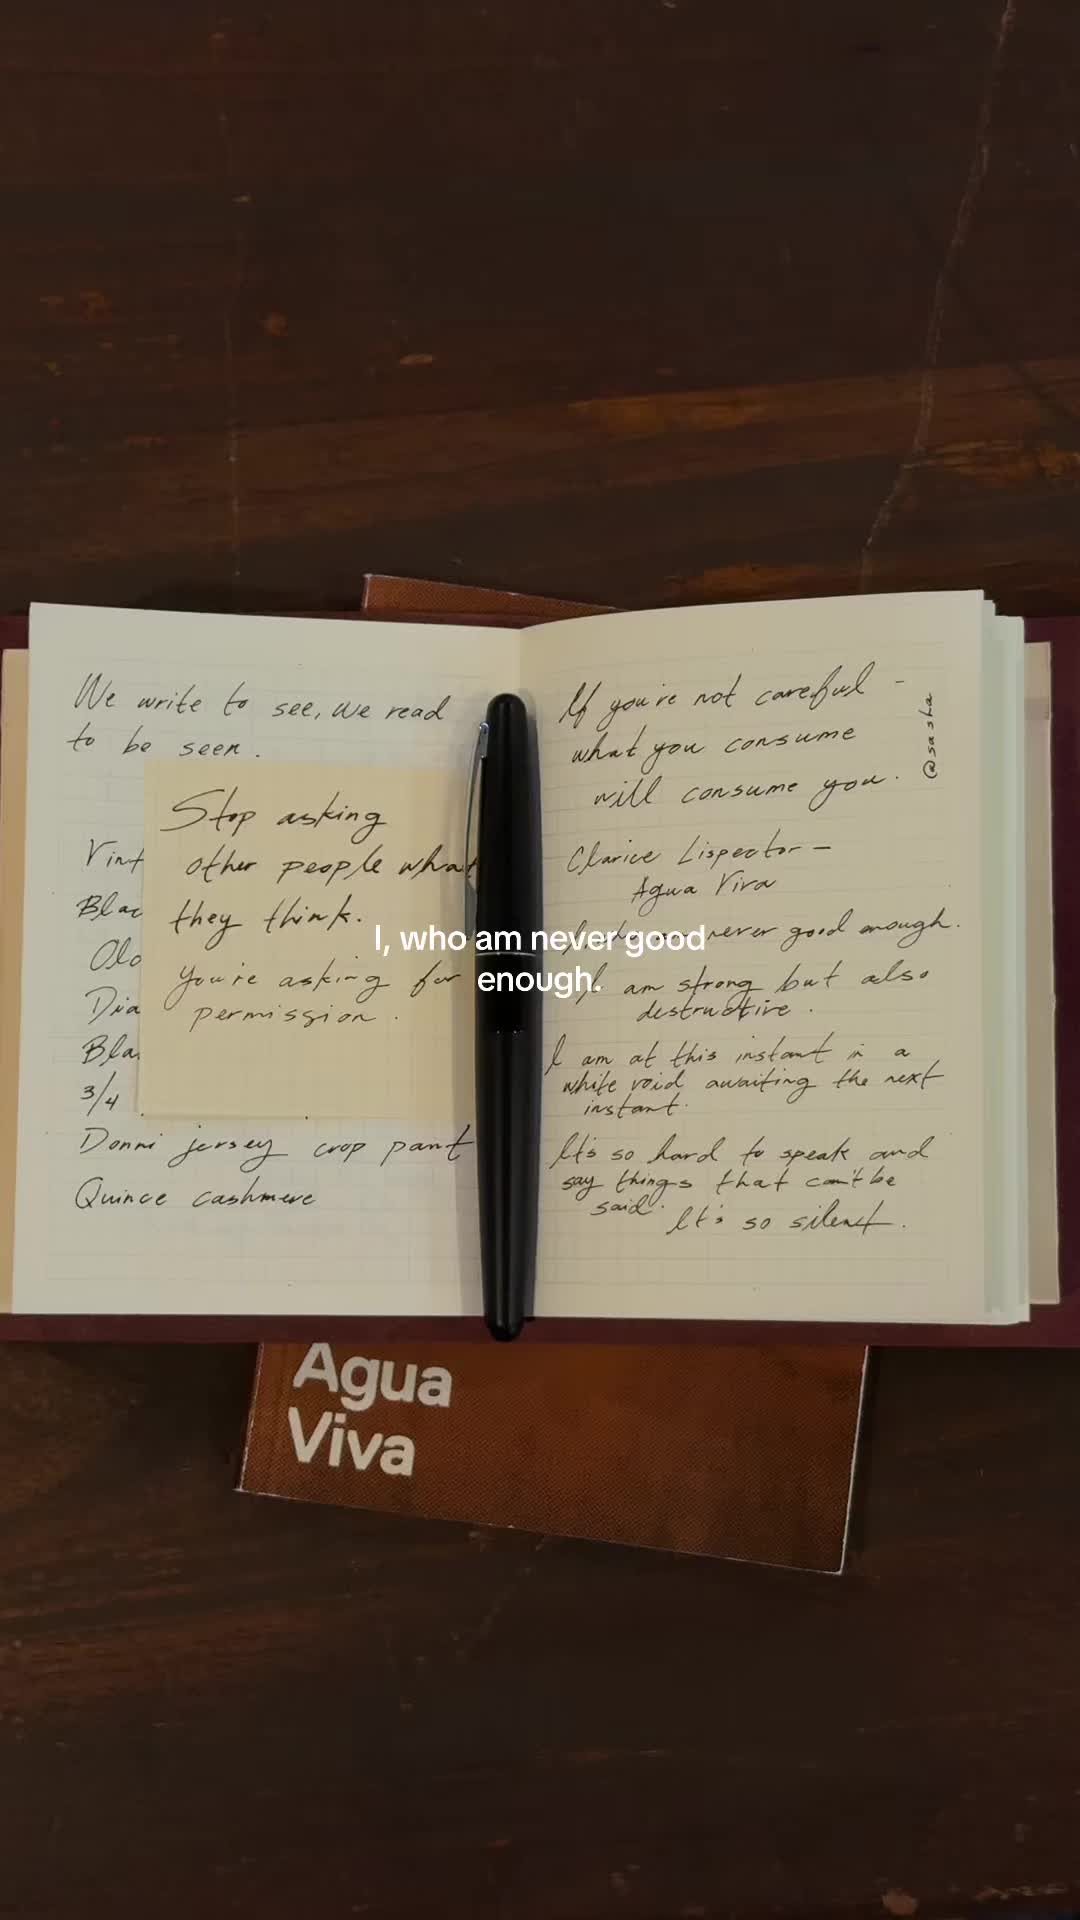 We write to see, we read
to be seen.
Stop asking
other people what
they think.
You're asking for
permission.
Vint
Blac
Olo
Dia
Bla
3/4
Donni jersey crop pant
Quince cashmere
If you're not careful -
what you consume
will consume you.
@sasha
Clarice Lispector -
Agua Viva
never good enough.
I, who am never good
enough.
I am strong but also
destructive.
I am at this instant in a
white void awaiting the next
instant.
It's so hard to speak and
say things that can't be
said. It's so silent.
Agua
Viva